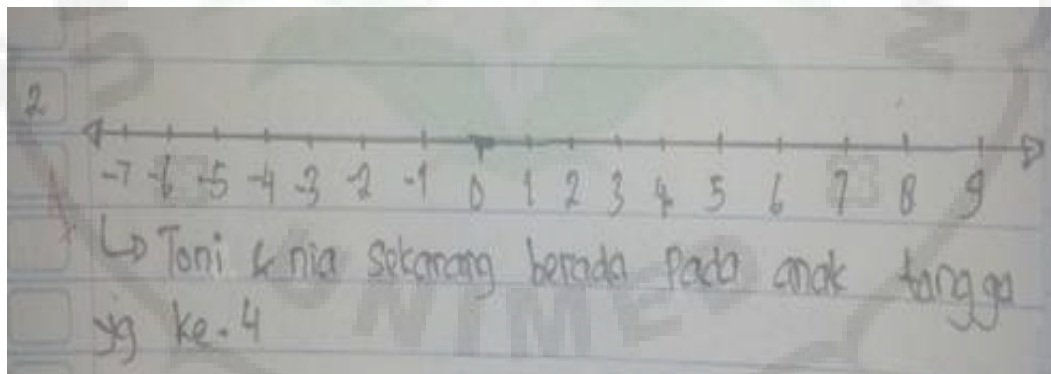 2
-7 -6 -5 -4 -3 -2 -1 0 1 2 3 4 5 6 7 8 9
↳ Toni & nia sekarang berada pada anak tangga
yg ke-4
UNIMED